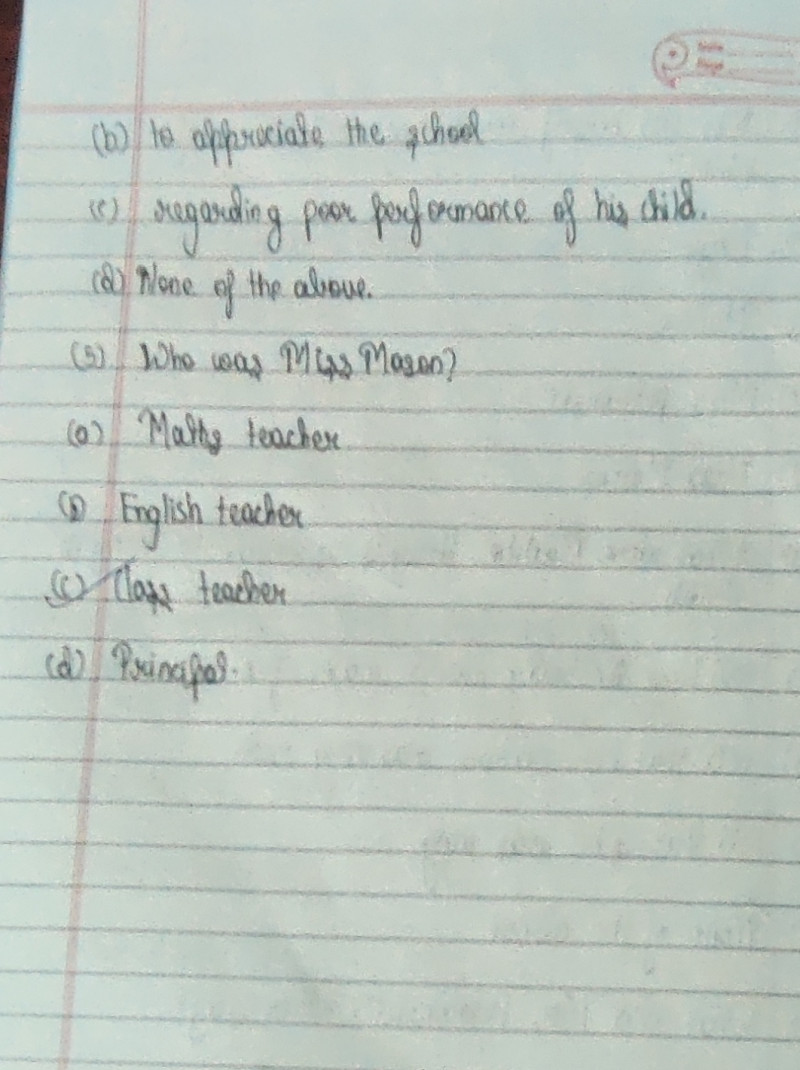 (b) to appreciate the school
(c) regarding poor performance of his child.
(d) None of the above.
(5) Who was Miss Mason?
(a) Maths teacher
(b) English teacher
(c) Class teacher
(d) Principal.